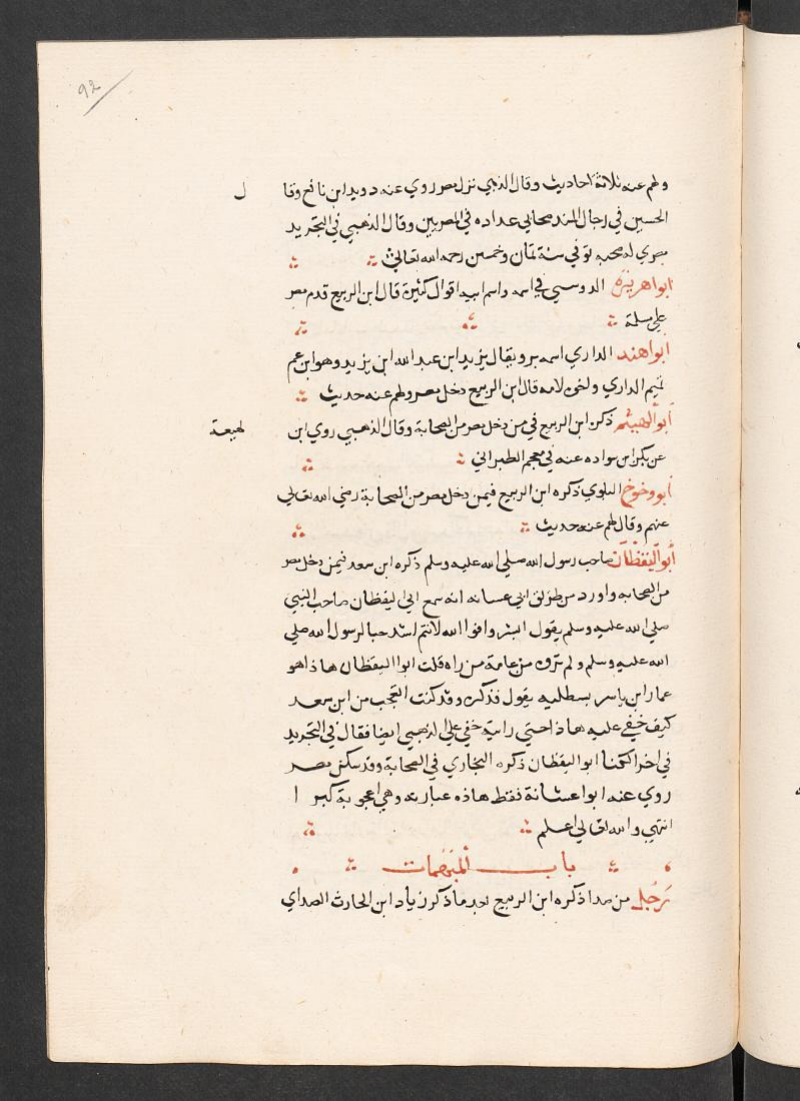 92
ولهم عنه ثلاثة احاديث وقال الذهبي نزل مصر روي عنه دويد ابن نافع وقا ل
الحسين في رجال المسند صحابي عداده في المصريين وقال الذهبي في التجريد
مصري له صحبه توفي سنة ثمان وخمسين رحمه الله تعالي
ابوا هريرة الدوسي في اسمه واسم ابيه اقوال كثيرة قال ابن الربيع قدم مصر
علي مسلمة
ابوا هند الداري اسمه بر ويقال يزيد ابن عبد الله ابن يزيد وهو ابن عم
تميم الداري واخي لامه قال ابن الربيع دخل مصر ولهم عنه حديث
ابوا لهيثم ذكره ابن الربيع في من دخل مصر من الصحابة وقال الذهبي روي ابن لهيعة
عن بكر ابن سواده عنه في معجم الطبراني
ابو وخوخ البلوي ذكره ابن الربيع فيمن دخل مصر من الصحابة رضي الله تعالي
عنهم وقال لهم عنه حديث
ابوا ليقظان صاحب رسول الله صلي الله عليه وسلم ذكره ابن سعد فيمن دخل مصر
من الصحابه واورد من طريق ابي عسانه انه سمع ابي اليقظان صاحب النبي
صلي الله عليه وسلم يقول ابشروا فوا الله لانتم اشد حبا لرسول الله صلي
الله عليه وسلم ولم تروه من عامة من راه قلت ابوا اليقظان هاذا هو
عمار ابن ياسر بسطليه يقول فذكره وقد كنت اتعجب من ابن سعد
كيف خفي عليه هاذا حتي رايته خفي علي الذهبي ايضا فقال في التجريد
في اخر الكنا ابو اليقظان ذكره البخاري في الصحابة وقد سكن مصر
روي عنه ابوا عشانة فقط هاذه عبارته وهي اعجوبة كبرا
انتهي والله تعالي اعلم
باب المبهمات
رجل من صدا ذكره ابن الربيع بعد ما ذكر زياد ابن الحارث الصداي